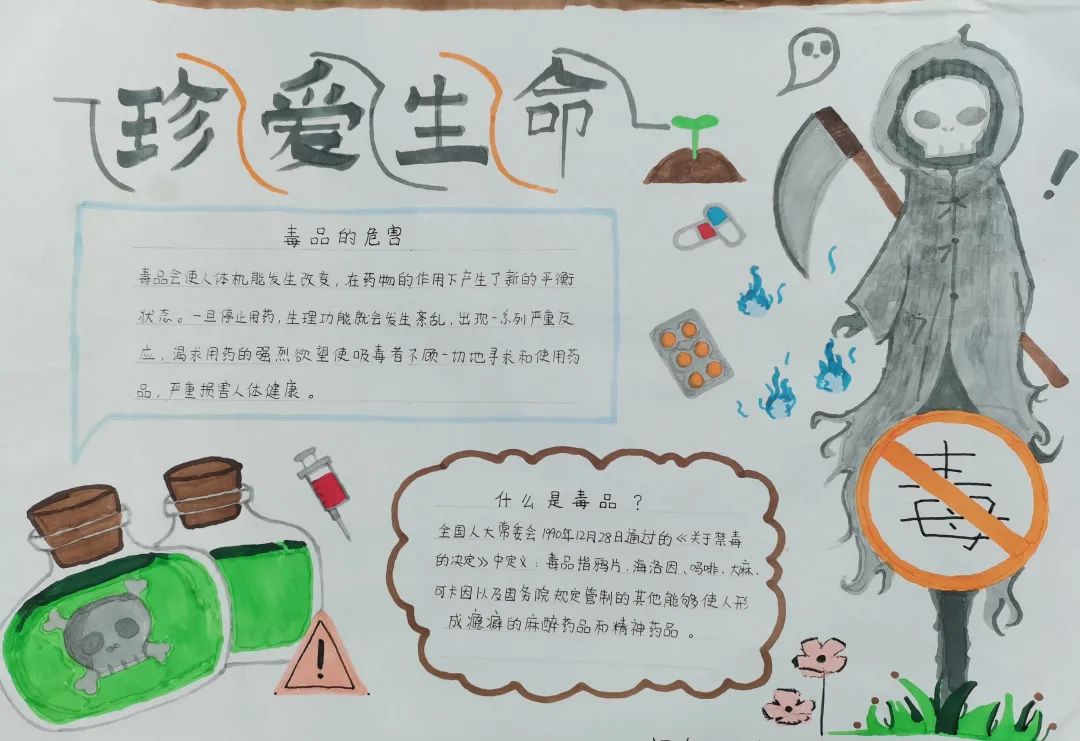 珍爱生命
毒品的危害
毒品会使人体机能发生改变，在药物的作用下产生了新的平衡
状态。一旦停止用药，生理功能就会发生紊乱，出现一系列严重反
应，渴求用药的强烈欲望使吸毒者不顾一切地寻求和使用药
品，严重损害人体健康。
什么是毒品？
全国人大常委会1990年12月28日通过的《关于禁毒
的决定》中定义：毒品指鸦片、海洛因、吗啡、大麻、
可卡因以及国务院规定管制的其他能够使人形
成瘾癖的麻醉药品和精神药品。
毒
!
!